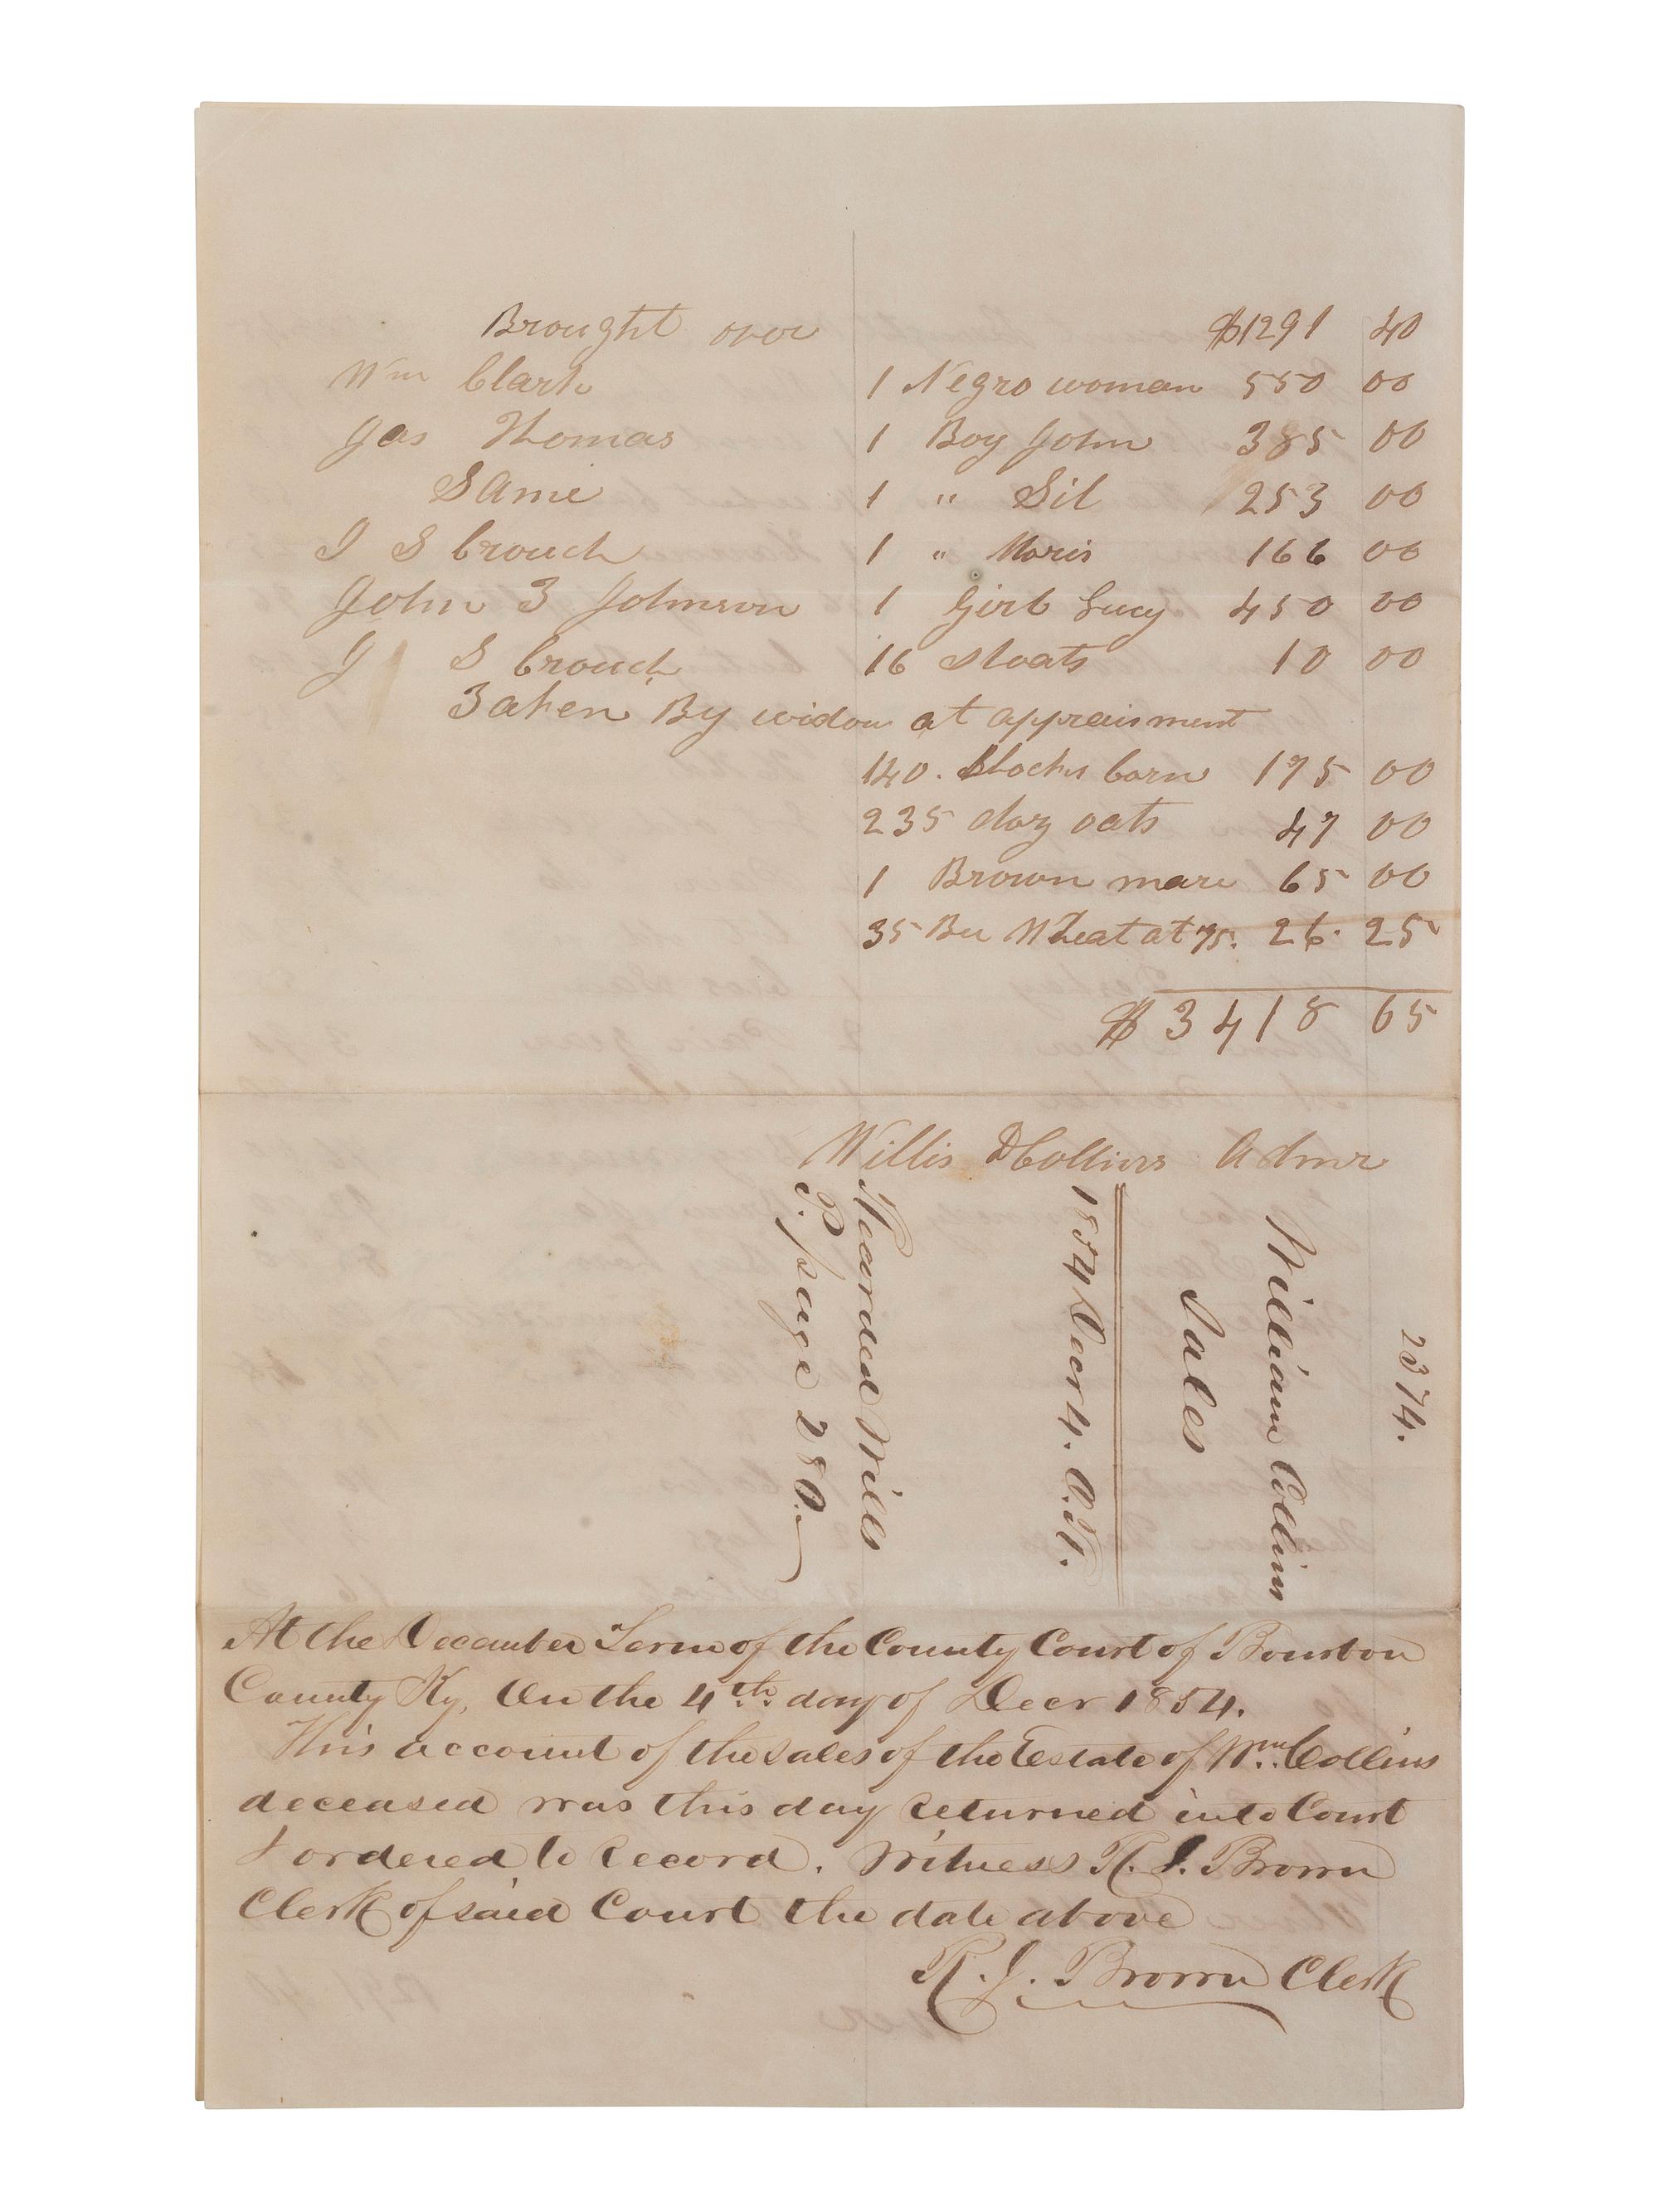 Brought over $1291 40
Wm Clark 1 Negro woman 550 00
Jas Thomas 1 Boy John 385 00
Same 1 " Sil 253 00
J S Crouch 1 " Moris 166 00
John T Johnson 1 Girl Lucy 450 00
J S Crouch 16 shoats 10 00
Taken By widow at appraisment
140. Shocks Corn 175 00
235 doz oats 47 00
1 Brown mare 65 00
35 Bu Wheat at 75. 26. 25
$3418 65
Willis Collins Admr
2374.
William Collins
Sales
1854 Decr 4. O.R.
Recorded Wills
P. page 280.
At the December Term of the County Court of Bourbon
County Ky, On the 4th day of Decr 1854.
This account of the sales of the Estate of Wm Collins
deceased was this day returned into Court
& ordered to record. Witness R. J. Brown
Clerk of said Court the date above
R. J. Brown Clerk